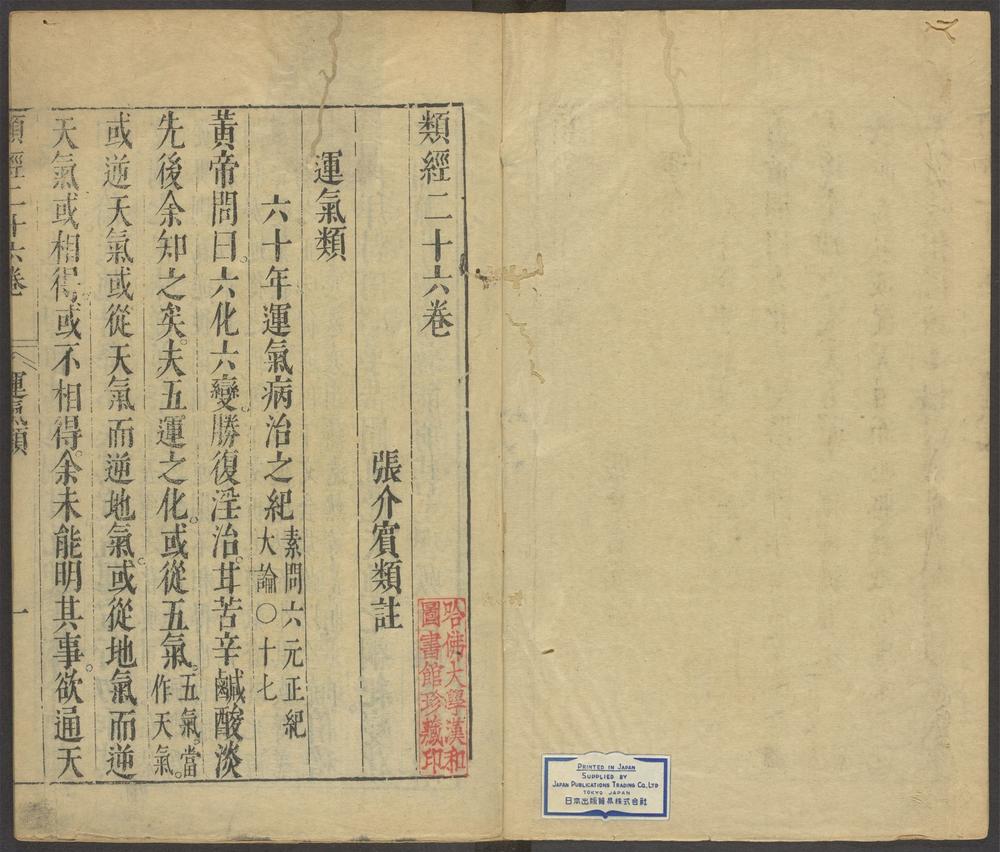 類經二十六卷
張介賓類註
運氣類
六十年運氣病治之紀 素問六元正紀大論○十七
黃帝問曰。六化六變。勝復淫治。甘苦辛鹹酸淡
先後余知之矣。夫五運之化。或從五氣。五氣。當作天氣。
或逆天氣或從天氣而逆地氣。或從地氣而逆
天氣或相得。或不相得。余未能明其事。欲通天
類經二十六卷 運氣類 一
哈佛大學漢和
圖書館珍藏印
PRINTED IN JAPAN
SUPPLIED BY
JAPAN PUBLICATIONS TRADING CO., LTD
TOKYO JAPAN
日本出版貿易株式会社